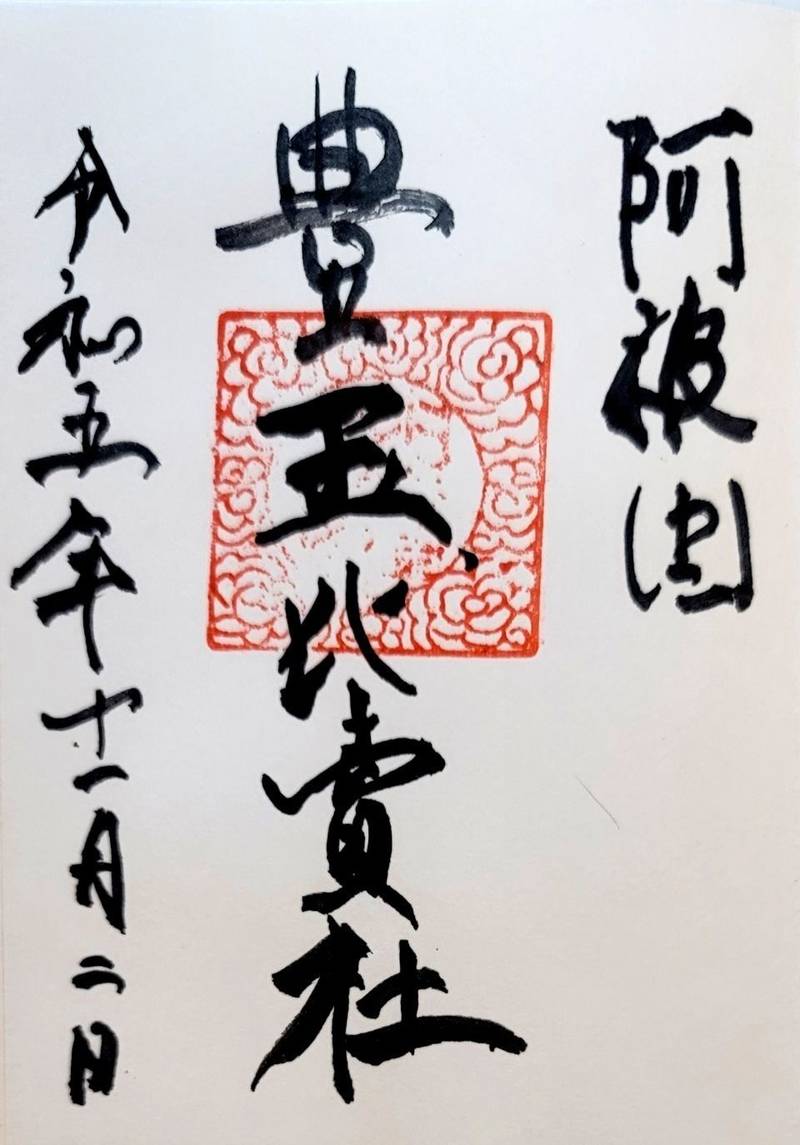 阿波国
豊玉比賣社
令和五年十一月二日